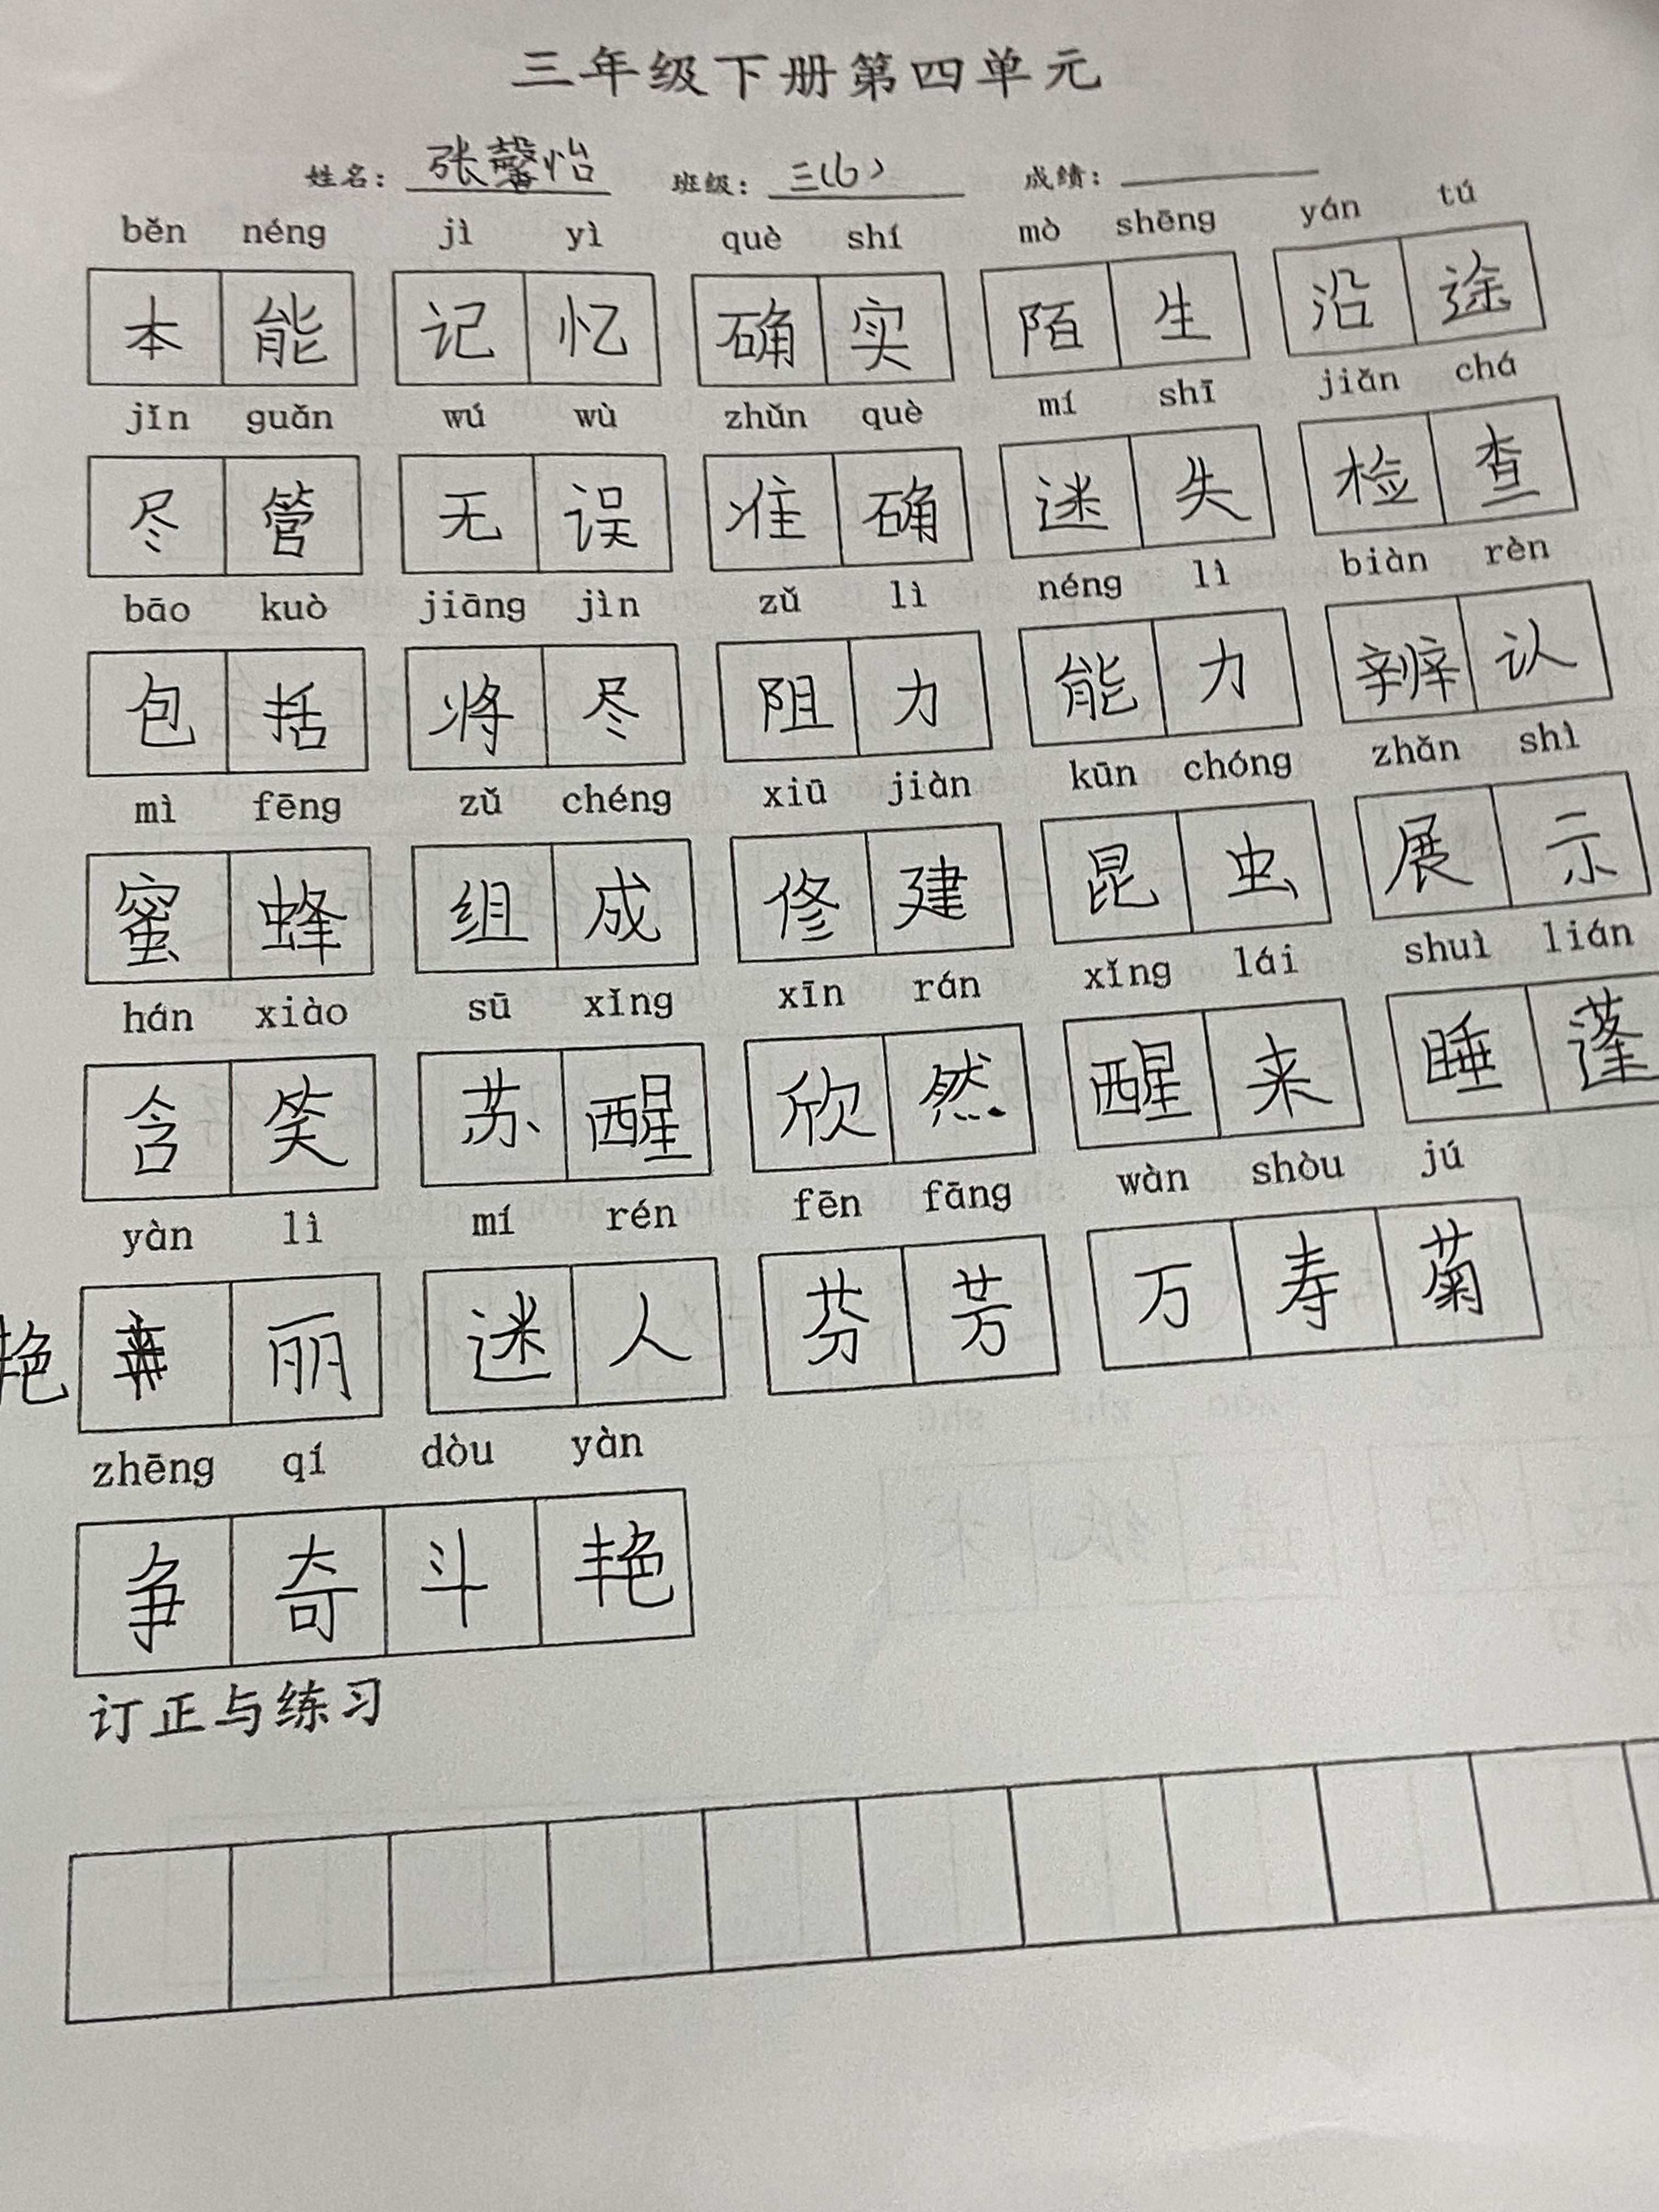 三年级下册第四单元
姓名：张馨怡 班级：三（6） 成绩：
běn néng jì yì què shí mò shēng yán tú
本能 记忆 确实 陌生 沿途
jǐn guǎn wú wù zhǔn què mí shī jiǎn chá
尽管 无误 准确 迷失 检查
bāo kuò jiāng jìn zǔ lì néng lì biàn rèn
包括 将尽 阻力 能力 辨认
mì fēng zǔ chéng xiū jiàn kūn chóng zhǎn shì
蜜蜂 组成 修建 昆虫 展示
hán xiào sū xǐng xīn rán xǐng lái shuì lián
含笑 苏醒 欣然 醒来 睡蓬
yàn lì mí rén fēn fāng wàn shòu jú
艳 丽 迷人 芬芳 万寿菊
zhēng qí dòu yàn
争奇斗艳
订正与练习